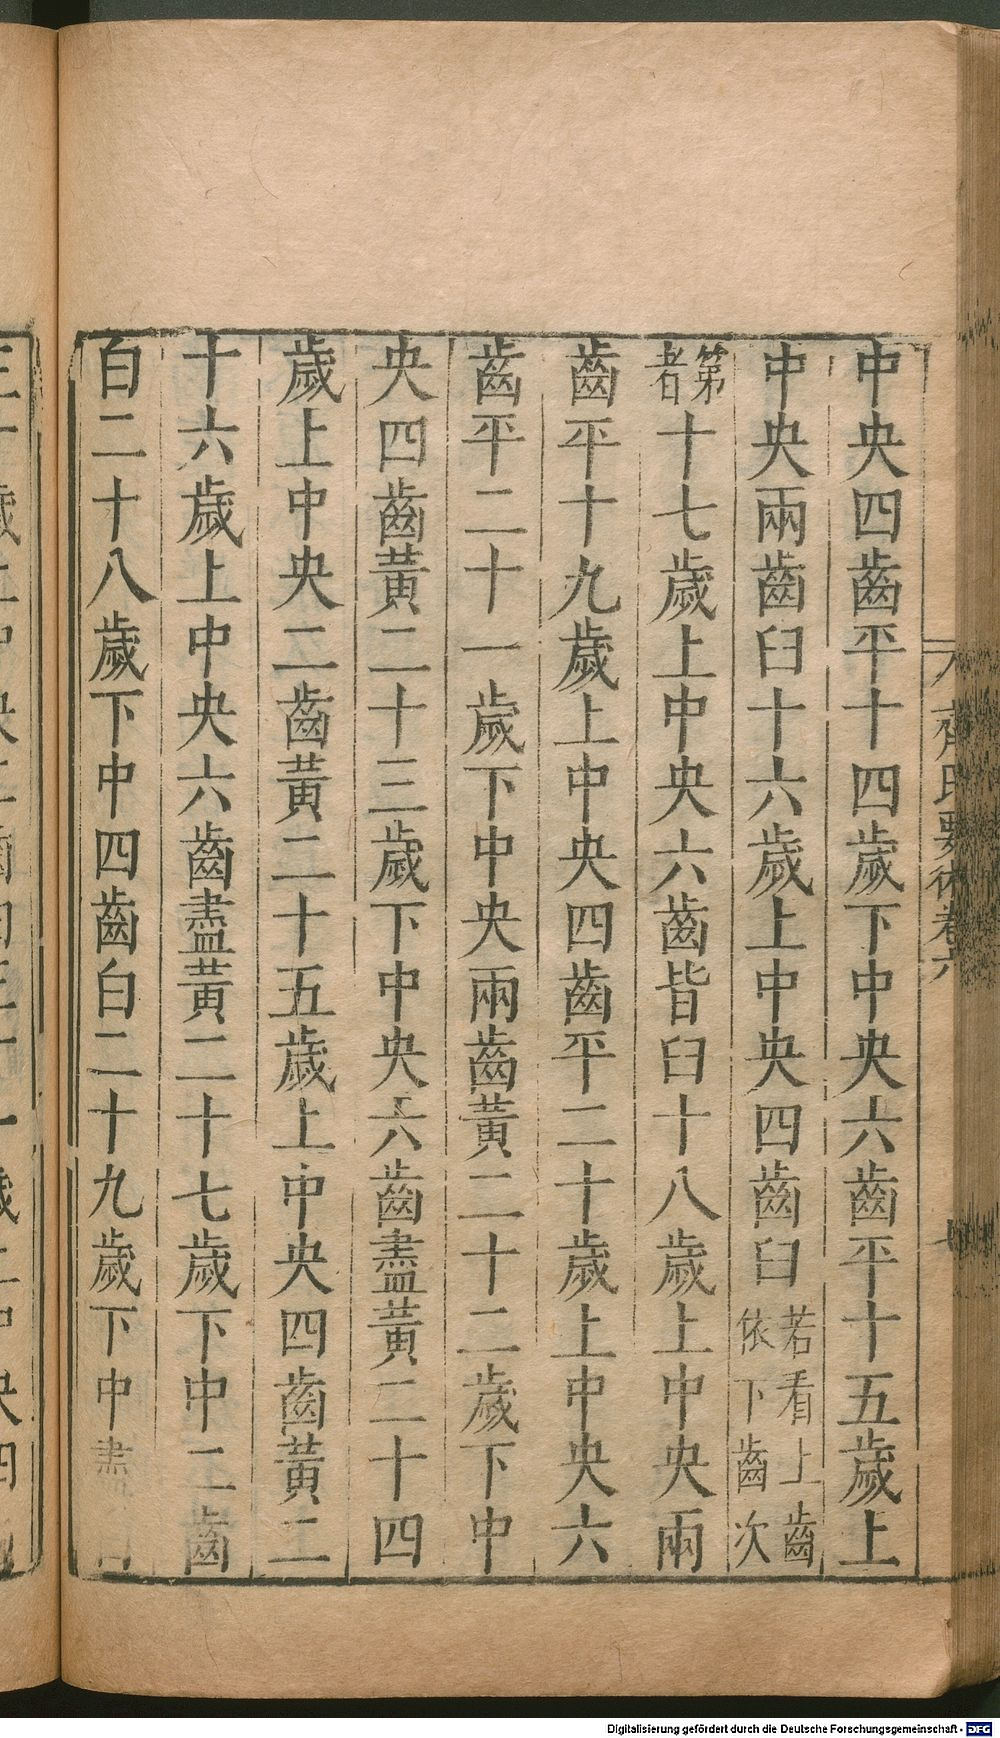 中央四齒平十四歲下中央六齒平十五歲上
中央兩齒臼十六歲上中央四齒臼若看上齒依下齒次
第者十七歲上中央六齒皆臼十八歲上中央兩
齒平十九歲上中央四齒平二十歲上中央六
齒平二十一歲下中央兩齒黃二十二歲下中
央四齒黃二十三歲下中央六齒盡黃二十四
歲上中央二齒黃二十五歲上中央四齒黃二
十六歲上中央六齒盡黃二十七歲下中二齒
白二十八歲下中四齒白二十九歲下中盡白
齊民要術卷六
Digitalisierung gefördert durch die Deutsche Forschungsgemeinschaft - DFG